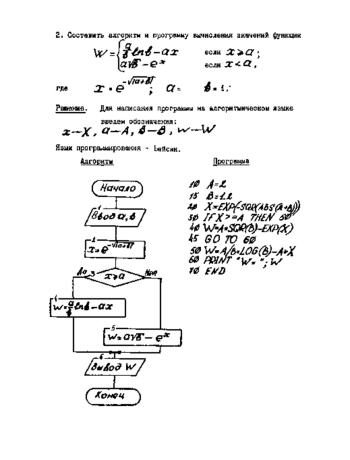 2. Составить алгоритм и программу вычисления значений функции
W = { a/b ln b - ax если x ⩾ a;
a√b - eˣ если x < a,
где x = e^-√|a+b|; a = b = 1.
Решение. Для написания программы на алгоритмическом языке
введем обозначения:
x—X, a—A, b—B, w—W
Язык программирования - Бейсик.
Алгоритм Программа
Начало
Ввод a, b
x = e^-√|a+b|
x ⩾ a
Да
W = a/b ln b - ax
W = a√b - eˣ
Вывод W
Конец
10 A=2
15 B=1.2
20 X=EXP(-SQR(ABS(A+B)))
30 IF X>=A THEN 50
40 W=A*SQR(B)-EXP(X)
45 GO TO 60
50 W=A/B*LOG(B)-A*X
60 PRINT "W="; W
70 END